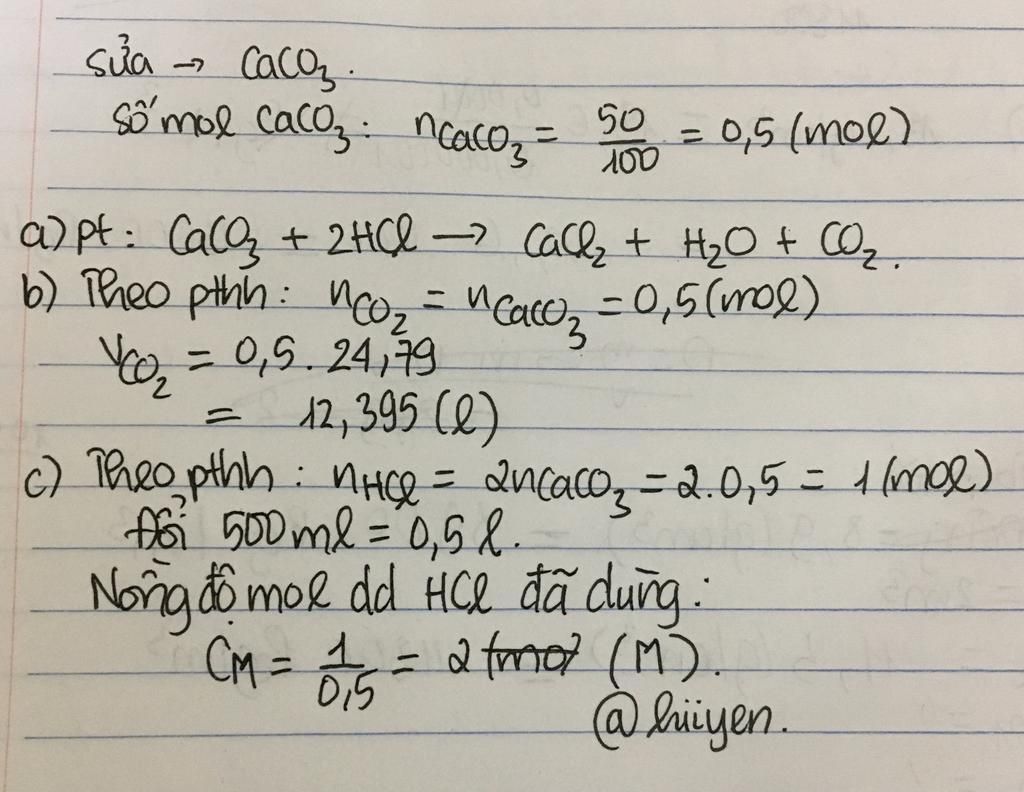 sửa → CaCO3.
Số mol CaCO3: nCaCO3 = 50/100 = 0,5 (mol)
a) pt: CaCO3 + 2HCl → CaCl2 + H2O + CO2.
b) Theo pthh: nCO2 = nCaCO3 = 0,5 (mol)
VCO2 = 0,5 . 24,79
= 12,395 (l)
c) Theo pthh: nHCl = 2nCaCO3 = 2.0,5 = 1 (mol)
Đổi 500 ml = 0,5 l.
Nồng độ mol dd HCl đã dùng:
CM = 1/0,5 = 2 (M).